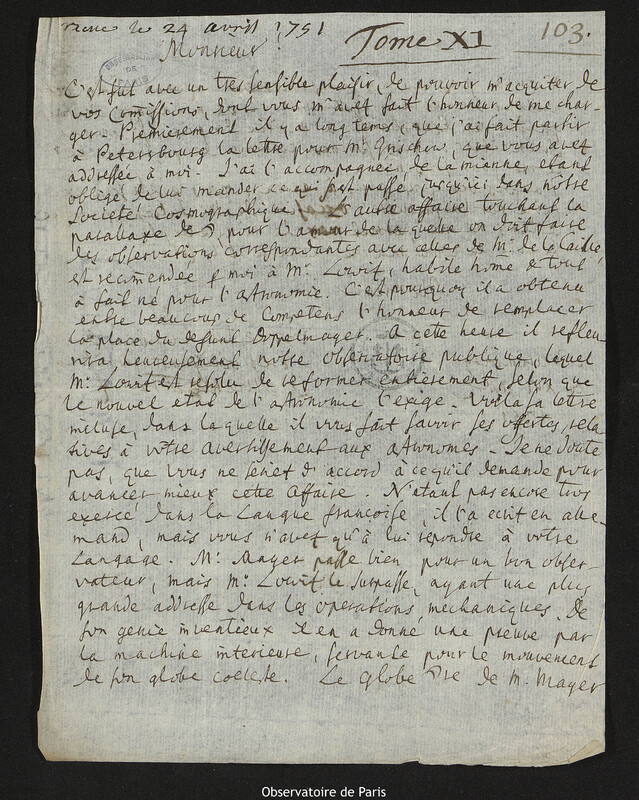 le 24 avril 1751
Tome XI
103.
Monsieur
C'est fait avec un tres sensible plaisir, de pouvoir m'acquiter de
vos Comissions, dont vous m'avez fait l'honneur de me char-
ger. Premierement il y a long tems, que j'ai fait partir
à Petersbourg la lettre pour Mr. Grischow, que vous avez
addressée à moi. J'ai l'accompagnée de la mienne, etant
obligé de lui mander ce qui s'est passé jusqu'ici dans nôtre
Societé Cosmographique. L'autre affaire touchant la
parallaxe de pour l'amour de la quelle on doit faire
des observations correspondantes avec celles de Mr. de la Caille,
est recomendée p moi à Mr. Lowitz, habile home & tout
à fait né pour l'astronomie. C'est pourquoy il a obtenu
entre beaucoup de Competens l'honneur de remplacer
la place du defunt Doppelmayer. A cette heure il refleu
rira heureusement notre observatoire publique, lequel
Mr. Lowitz est resolu de reformer entierement, selon que
le nouvel etat de l'astronomie l'exige. Voila sa lettre
incluse, dans laquelle il vous fait savoir ses offertes, rela
tives à vôtre avertissement aux astronomes. Je ne doute
pas, que vous ne seriez d'accord à ce qu'il demande pour
avancer mieux cette affaire. N'etant pas encore tres
exercé dans la Langue françoise, il l'a ecrit en alle-
mand, mais vous n'avez qu'à lui repondre à vôtre
Langage. Mr. Mayer passe bien pour un bon obser-
vateur, mais Mr. Lowitz le surpasse, ayant une plus
grande addresse dans les operations mechaniques. De
son genie inventieux il en a donné une preuve par
la machine interieure, servante pour le mouvement
de son globe coeleste. Le globe de M. Mayer
Observatoire de Paris